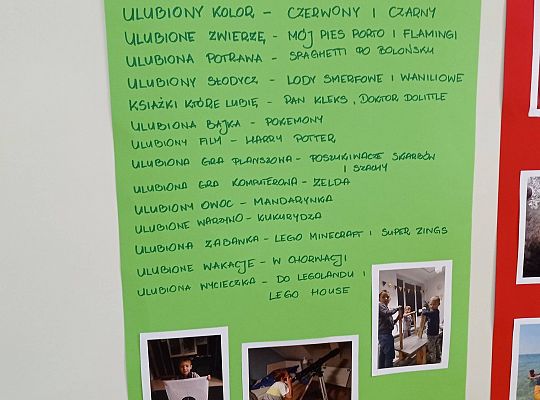 ULUBIONY KOLOR - CZERWONY I CZARNY
ULUBIONE ZWIERZĘ - MÓJ PIES PORTO I FLAMINGI
ULUBIONA POTRAWA - SPAGHETTI PO BOLOŃSKU
ULUBIONY SŁODYCZ - LODY SMERFOWE I WANILIOWE
KSIĄŻKI KTÓRE LUBIĘ - PAN KLEKS, DOKTOR DOLITTLE
ULUBIONA BAJKA - POKEMONY
ULUBIONY FILM - HARRY POTTER
ULUBIONA GRA PLANSZOWA - POSZUKIWACZE SKARBÓW
I SZACHY
ULUBIONA GRA KOMPUTEROWA - ZELDA
ULUBIONY OWOC - MANDARYNKA
ULUBIONE WARZYWO - KUKURYDZA
ULUBIONA ZABAWKA - LEGO MINECRAFT I SUPER ZINGS
ULUBIONE WAKACJE - W CHORWACJI
ULUBIONA WYCIECZKA - DO LEGOLANDU I
LEGO HOUSE